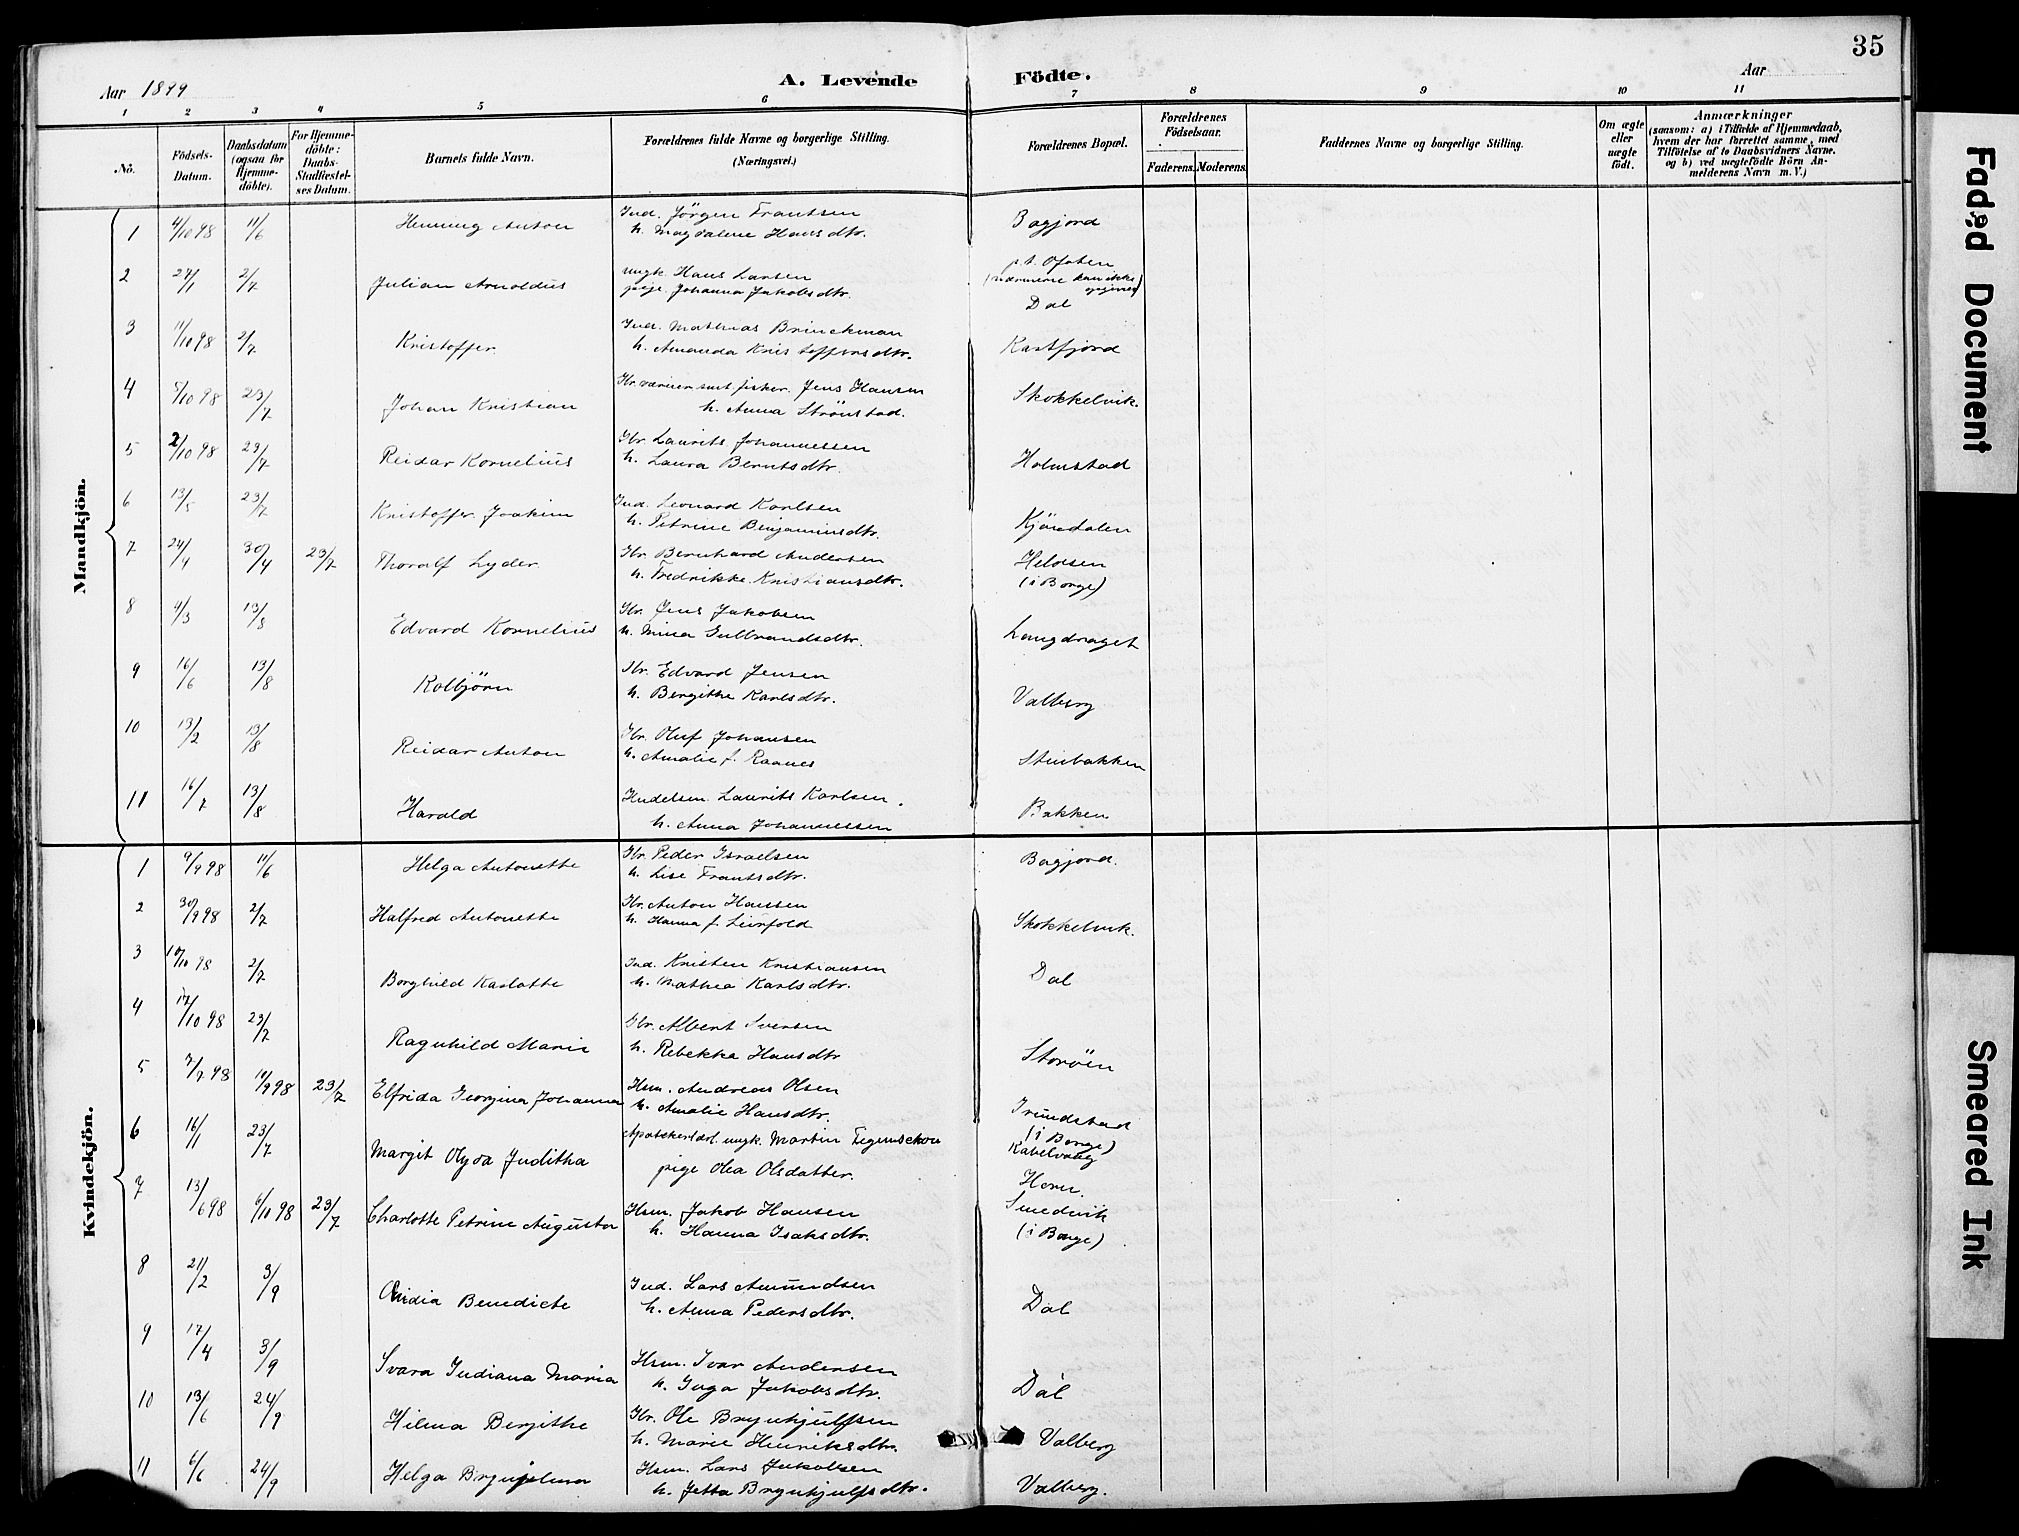 35
Aar 1899
A. Levende Födte.
Aar
1 2 3 4 5 6 7 8 9 10 11
No.
Födsels-Datum.
Daabsdatum (ogsaa for Hjemme-döbte).
For Hjemme-döbte: Daabs-Stadfæstel-ses Datum.
Barnets fulde Navn.
Forældrenes fulde Navne og borgerlige Stilling. (Næringsvei.)
Forældrenes Bopæl.
Forældrenes Födselsaar.
Faderens. Moderens.
Faddernes Navne og borgerlige Stilling.
Om ægte eller uægte födt.
Anmærkninger
(saasom: a) i Tilfælde af Hjemmedaab, hvem der har forrettet samme, med Tilföielse af to Daabsvidners Navne. og b) ved uægtefödte Börn An-melderens Navn m. V.)
Mandkjön.
1 4/10 98 11/6 Henning Anton Ind. Jörgen Frantsen Bogjord
h. Magdalene Hansdtr.
2 27/1 2/7 Julian Arnoldus ungk. Hans Larsen p.t. Ofoten
pige Johanna Jakobsdtr. (nærmere kan ikke opgives)
Dal
3 11/10 98 2/7 Kristoffer Ind. Mathias Brinckman
h. Amanda Kristoffersdtr. Kartfjord
4 5/10 98 23/7 Johan Kristian Hr. værner samt fisker. Jens Hansen Skokkelvik.
h. Anna Strönstad.
5 2/10 98 23/7 Reidar Kornelius Hr. Laurits Johannessen
h. Laura Berntsdtr. Holmstad
6 13/5 23/7 Kristoffer Joakim Ind. Leonard Karlsen
h. Petrine Benjaminsdtr. Kjöndalen
7 24/4 30/4 23/7 Thoralf Lyder Hr. Bernhard Andersen
h. Fredrikke Kristiansdtr. (i Borge)
8 4/3 13/8 Edvard Kornelius Hr. Jens Jakobsen
h. Mina Gulbrandsdtr. Langdraget
9 16/6 13/8 Kolbjörn Hr. Edvard Jensen
h. Bergithe Karlsdtr. Valberg
10 13/2 13/8 Reidar Anton Hr. Oluf Johansen
h. Amalie f. Raanes Stenbakken
11 16/7 13/8 Harald Handelsm. Laurits Karlsen. Bakken
h. Anna Johannessen
Kvindekjön.
1 9/9 98 11/6 Helga Antonette Hr. Peder Israelsen Bogjord.
h. Lise Frantsdtr.
2 30/9 98 2/7 Halfred Antonette Hr. Anton Hansen
h. Hanna f. Leirfold Skokkelvik.
3 10/10 98 2/7 Borghild Karlotte Ind. Kristen Kristiansen Dal
h. Mathea Karlsdtr.
4 17/10 98 23/7 Ragnhild Marie Hr. Albert Iversen
h. Rebekka Hansdtr Storöen
5 7/7 98 11/9 98 23/7 Elfrida Georgina Johanna Hsm. Andreas Olsen
h. Amalie Hansdtr. (i Borge)
6 16/1 23/7 Margit Olyda Juditha ungk. Martin Kabelvaag
pige Olea Olsdatter. Horn.
7 13/6 98 6/11 98 23/7 Charlotte Petrine Augusta Hsm. Jakob Hansen Smedvik
h. Hanna Isaksdtr. (i Borge)
8 21/2 3/9 Benedicte Ind. Lars Amundsen Dal
h. Anna Pedersdtr.
9 17/4 3/9 Svara Indiana Maria Hsm. Ivar Andersen
h. Inga Jakobsdtr. Dal
10 13/6 24/9 Hilma Bergithe Hr. Ole Brynhjulfsen
h. Marie Henriksdtr. Valberg
11 6/6 24/9 Helga Brynjelma Hsm. Lars Jakobsen
h. Jetta Brynhjulfsdtr. Valberg.
Faded Document
Smeared Ink